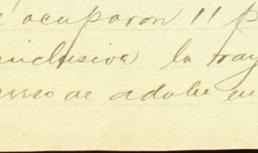 ocuparon 11 p
inclusive la tray
de adobe en